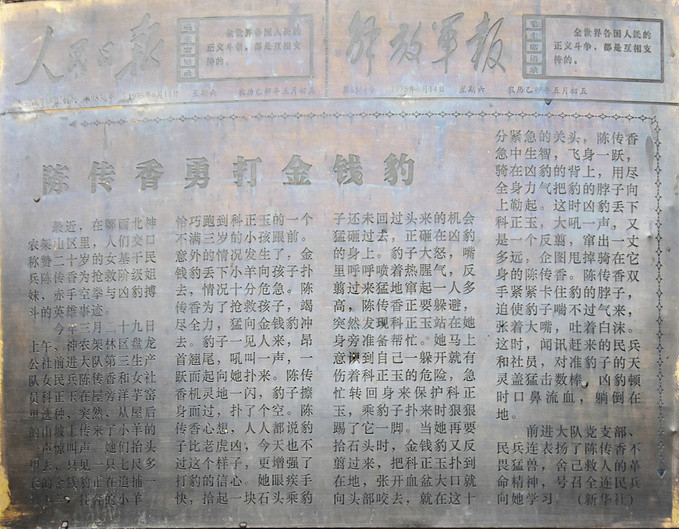 人民日报
毛主席语录
全世界各国人民的
正义斗争，都是互相支
持的。
解放军报
毛主席语录
全世界各国人民的
正义斗争，都是互相支
持的。
1975年6月14日 星期六 农历乙卯年五月初五
1975年6月14日 星期六 农历乙卯年五月初五
陈传香勇打金钱豹
最近，在鄂西北神
农架山区里，人们交口
称赞二十岁的女基干民
兵陈传香为抢救阶级姐
妹，赤手空拳与凶豹搏
斗的英雄事迹。
今年三月二十九日
上午、神农架林区盘龙
公社前进大队第三生产
队女民兵陈传香和女社
员科正玉在屋旁洋芋窖
里选种，突然、从屋后
的山坡上传来了小羊的
惊叫声。她们抬头
只见一只七尺多
金钱豹正在追捕一
小羊。
恰巧跑到科正玉的一个
不满三岁的小孩跟前。
意外的情况发生了，金
钱豹丢下小羊向孩子扑
去，情况十分危急。陈
传香为了抢救孩子，竭
尽全力，猛向金钱豹冲
去。豹子一见人来，昂
首翘尾，吼叫一声，一
跃而起向她扑来。陈传
香机灵地一闪，豹子擦
身而过，扑了个空。陈
传香心想，人人都说豹
子比老虎凶，今天也不
过这个样子，更增强了
打豹的信心。她眼疾手
快，拾起一块石头乘豹
子还未回过头来的机会
猛砸过去，正砸在凶豹
的身上。豹子大怒，嘴
里呼呼喷着热腥气，反
剪过来猛地窜起一人多
高，陈传香正要躲避，
突然发现科正玉站在她
身旁准备帮忙。她马上
意识到自己一躲开就有
伤着科正玉的危险，急
忙转回身来保护科正
玉，乘豹子扑来时狠狠
踢了它一脚。当她再要
拾石头时，金钱豹又反
剪过来，把科正玉扑到
在地，张开血盆大口就
向头部咬去，就在这十
分紧急的关头，陈传香
急中生智，飞身一跃，
骑在凶豹的背上，用尽
全身力气把豹的脖子向
上勒起。这时凶豹丢下
科正玉，大吼一声，又
是一个反剪，窜出一丈
多远，企图甩掉骑在它
身的陈传香。陈传香双
手紧紧卡住豹的脖子，
迫使豹子喘不过气来，
张着大嘴，吐着白沫。
这时，闻讯赶来的民兵
和社员，对准豹子的天
灵盖猛击数棒，凶豹顿
时口鼻流血，躺倒在
地。
前进大队党支部、
民兵连表扬了陈传香不
畏猛兽，舍己救人的革
命精神，号召全连民兵
向她学习。（新华社）